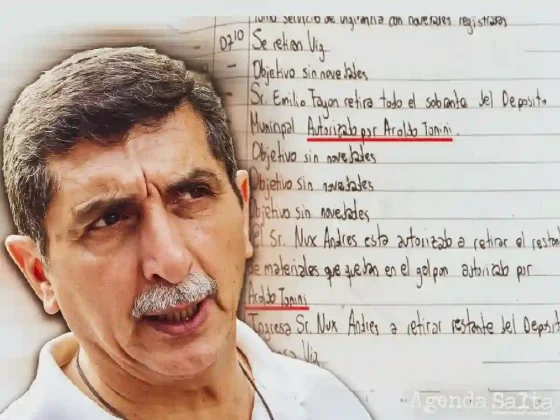 Tomo servicio de vigilancia con novedades registradas
07 10 Se retira Vig
- Objetivo sin novedades
- Sr. Emilio Fayon retira todo el sobrante del Deposito
Municipal Autorizado por Aroldo Tonini.
Objetivo sin novedades
Objetivo sin novedades
Objetivo sin novedades
El Sr. Nux Andres esta autorizado a retirar el restan
de materiales que quedan en el galpon autorizado por
Aroldo Tonini
Ingresa Sr. Nux Andres a retirar restante del Deposito
Vig
Agenda Salta